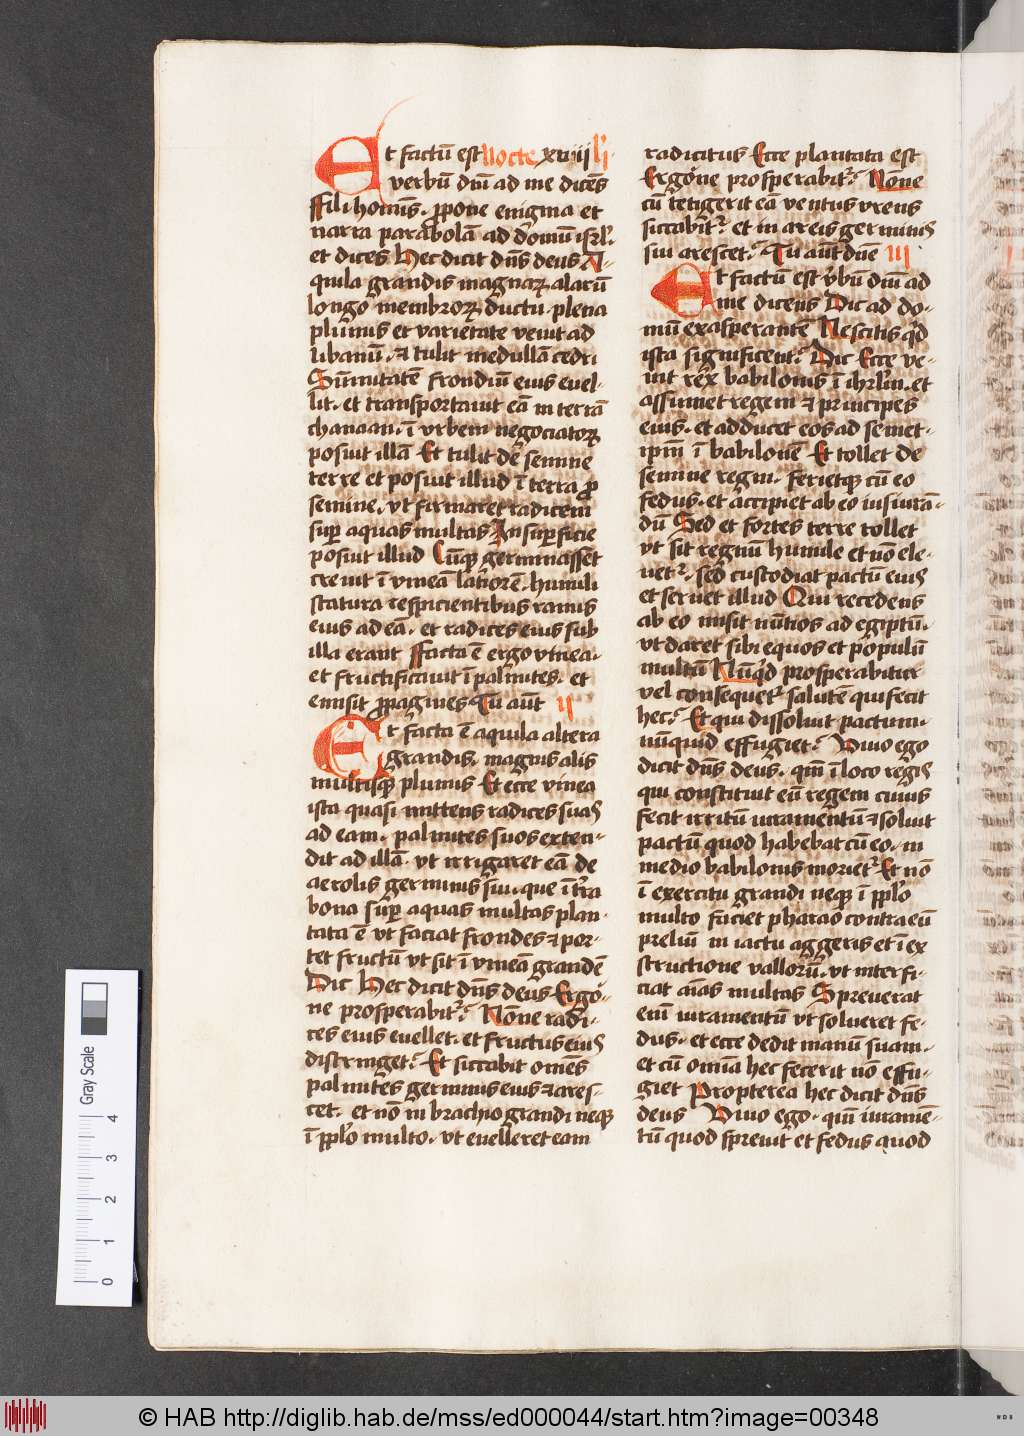 Et factū est Nocte xviiij lı̄
verbū dn̄i ad me dicēs
ffili homīs. ꝓpone enigma et
narra parabolam ad domū isrl̓.
et dices Hec dicit dn̄s deus A-
quila grandis magnaꝝ alarū
longo membroꝝ ductu. plena
plumis et varietate venit ad
libanū. ⁊ tulit medullā cedri
Sūmitatē frondiū eius euel-
lit. et transportauit eā in terrā
chanaan. ī vrbem negociatoꝝ
posuit illā Et tulit de semine
terre et posuit illud ī terra ꝓ
semine. vt firmaret radicem
suꝑ aquas multas In suꝑficie
posuit illud Cūqꝫ germinasset
creuit ī vineā latiorē. humili
statura respicientibus ramis
eius ad eā. et radices eius sub
illa erant ffacta ē ergo vinea.
et fructificauit ī palmites. et
emisit ꝓpagines Tu aūt ij
Et facta ē aquila altera
grandis. magnis alis
multisqꝫ plumis Et ecce vinea
ista quasi mittens radices suas
ad eam. palmites suos exten-
dit ad illā. vt irrigaret eā de
aeolis germinis sui. que ī tr̄a
bona suꝑ aquas multas plan-
tata ē vt faciat frondes ⁊ por-
tet fructū vt sit ī vineā grandē
Dic Hec dicit dn̄s deus Ergo-
ne prosperabit᷑? Nōne radi-
ces eius euellet. et fructus eius
distringet? Et siccabit omēs
palmites germinis eius ⁊ ares-
cet. et nō in brachio grandi neqꝫ
ī pplo̓ multo. vt euelleret eam
radicitus Ecce plantata est
Ergone prosperabit᷑? Nōne
cū tetigerit eā ventus vrens
siccabit᷑. et in areis germinis
sui arescet? Tu aūt dn̄e iij
Et factū est v̓bū dn̄i ad
me dicens Dic ad do-
mū exasperantē Nescitis qd̓
ista significent? Dic Ecce ve-
nit rex babilonis ī ihrl̓m. et
assumet regem ⁊ principes
eius. et adducet eos ad semet-
ip̄m ī babilonē Et tollet de
semine regni. ferietqꝫ cū eo
fedus. et accipiet ab eo iusiurā-
dū Sed et fortes terre tollet
vt sit regnū humile et nō ele-
uet᷑. sed custodiat pactū eius
et seruet illud Qui recedens
ab eo misit nūtios ad egiptū.
vt daret sibi equos et populū
multū Nūqd̓ prosperabitur
vel consequet᷑ salutē qui fecit
hec? Et qui dissoluit pactum.
nūquid effugiet? Viuo ego
dicit dn̄s deus. qm̄ ī loco regis
qui constituit eū regem cuius
fecit irritū iuramentū ⁊ soluit
pactū quod habebat cū eo. in
medio babilonis moriet᷑ Et nō
ī exercitu grandi neqꝫ ī pplo̓
multo faciet pharao contra eū
preliū in iactu aggeris et ī ex
structione vallorū. vt interfi-
ciat aīas multas Spreuerat
enī iuramentū vt solueret fe-
dus. et ecce dedit manū suam.
et cū omīa hec fecerit nō effu-
giet Propterea hec dicit dn̄s
deus Viuo ego. qm̄ iuramē-
tū quod spreuit et fedus quod
Gray Scale
0 1 2 3 4
© HAB http://diglib.hab.de/mss/ed000044/start.htm?image=00348